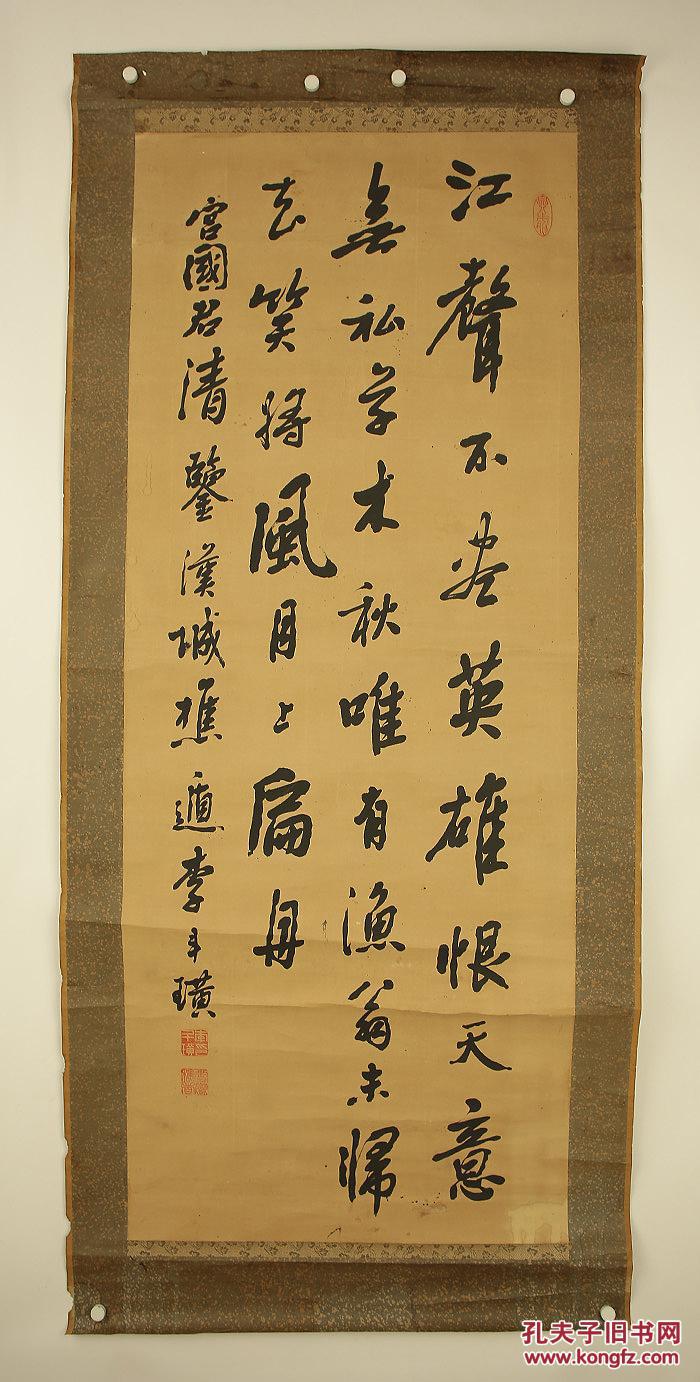 江聲不盡英雄恨天意
無私草木秋唯有漁翁未歸
去笑將風月上扁舟
宮國君清鑒漢城樵遁李斗璜
孔夫子旧书网
www.kongfz.com